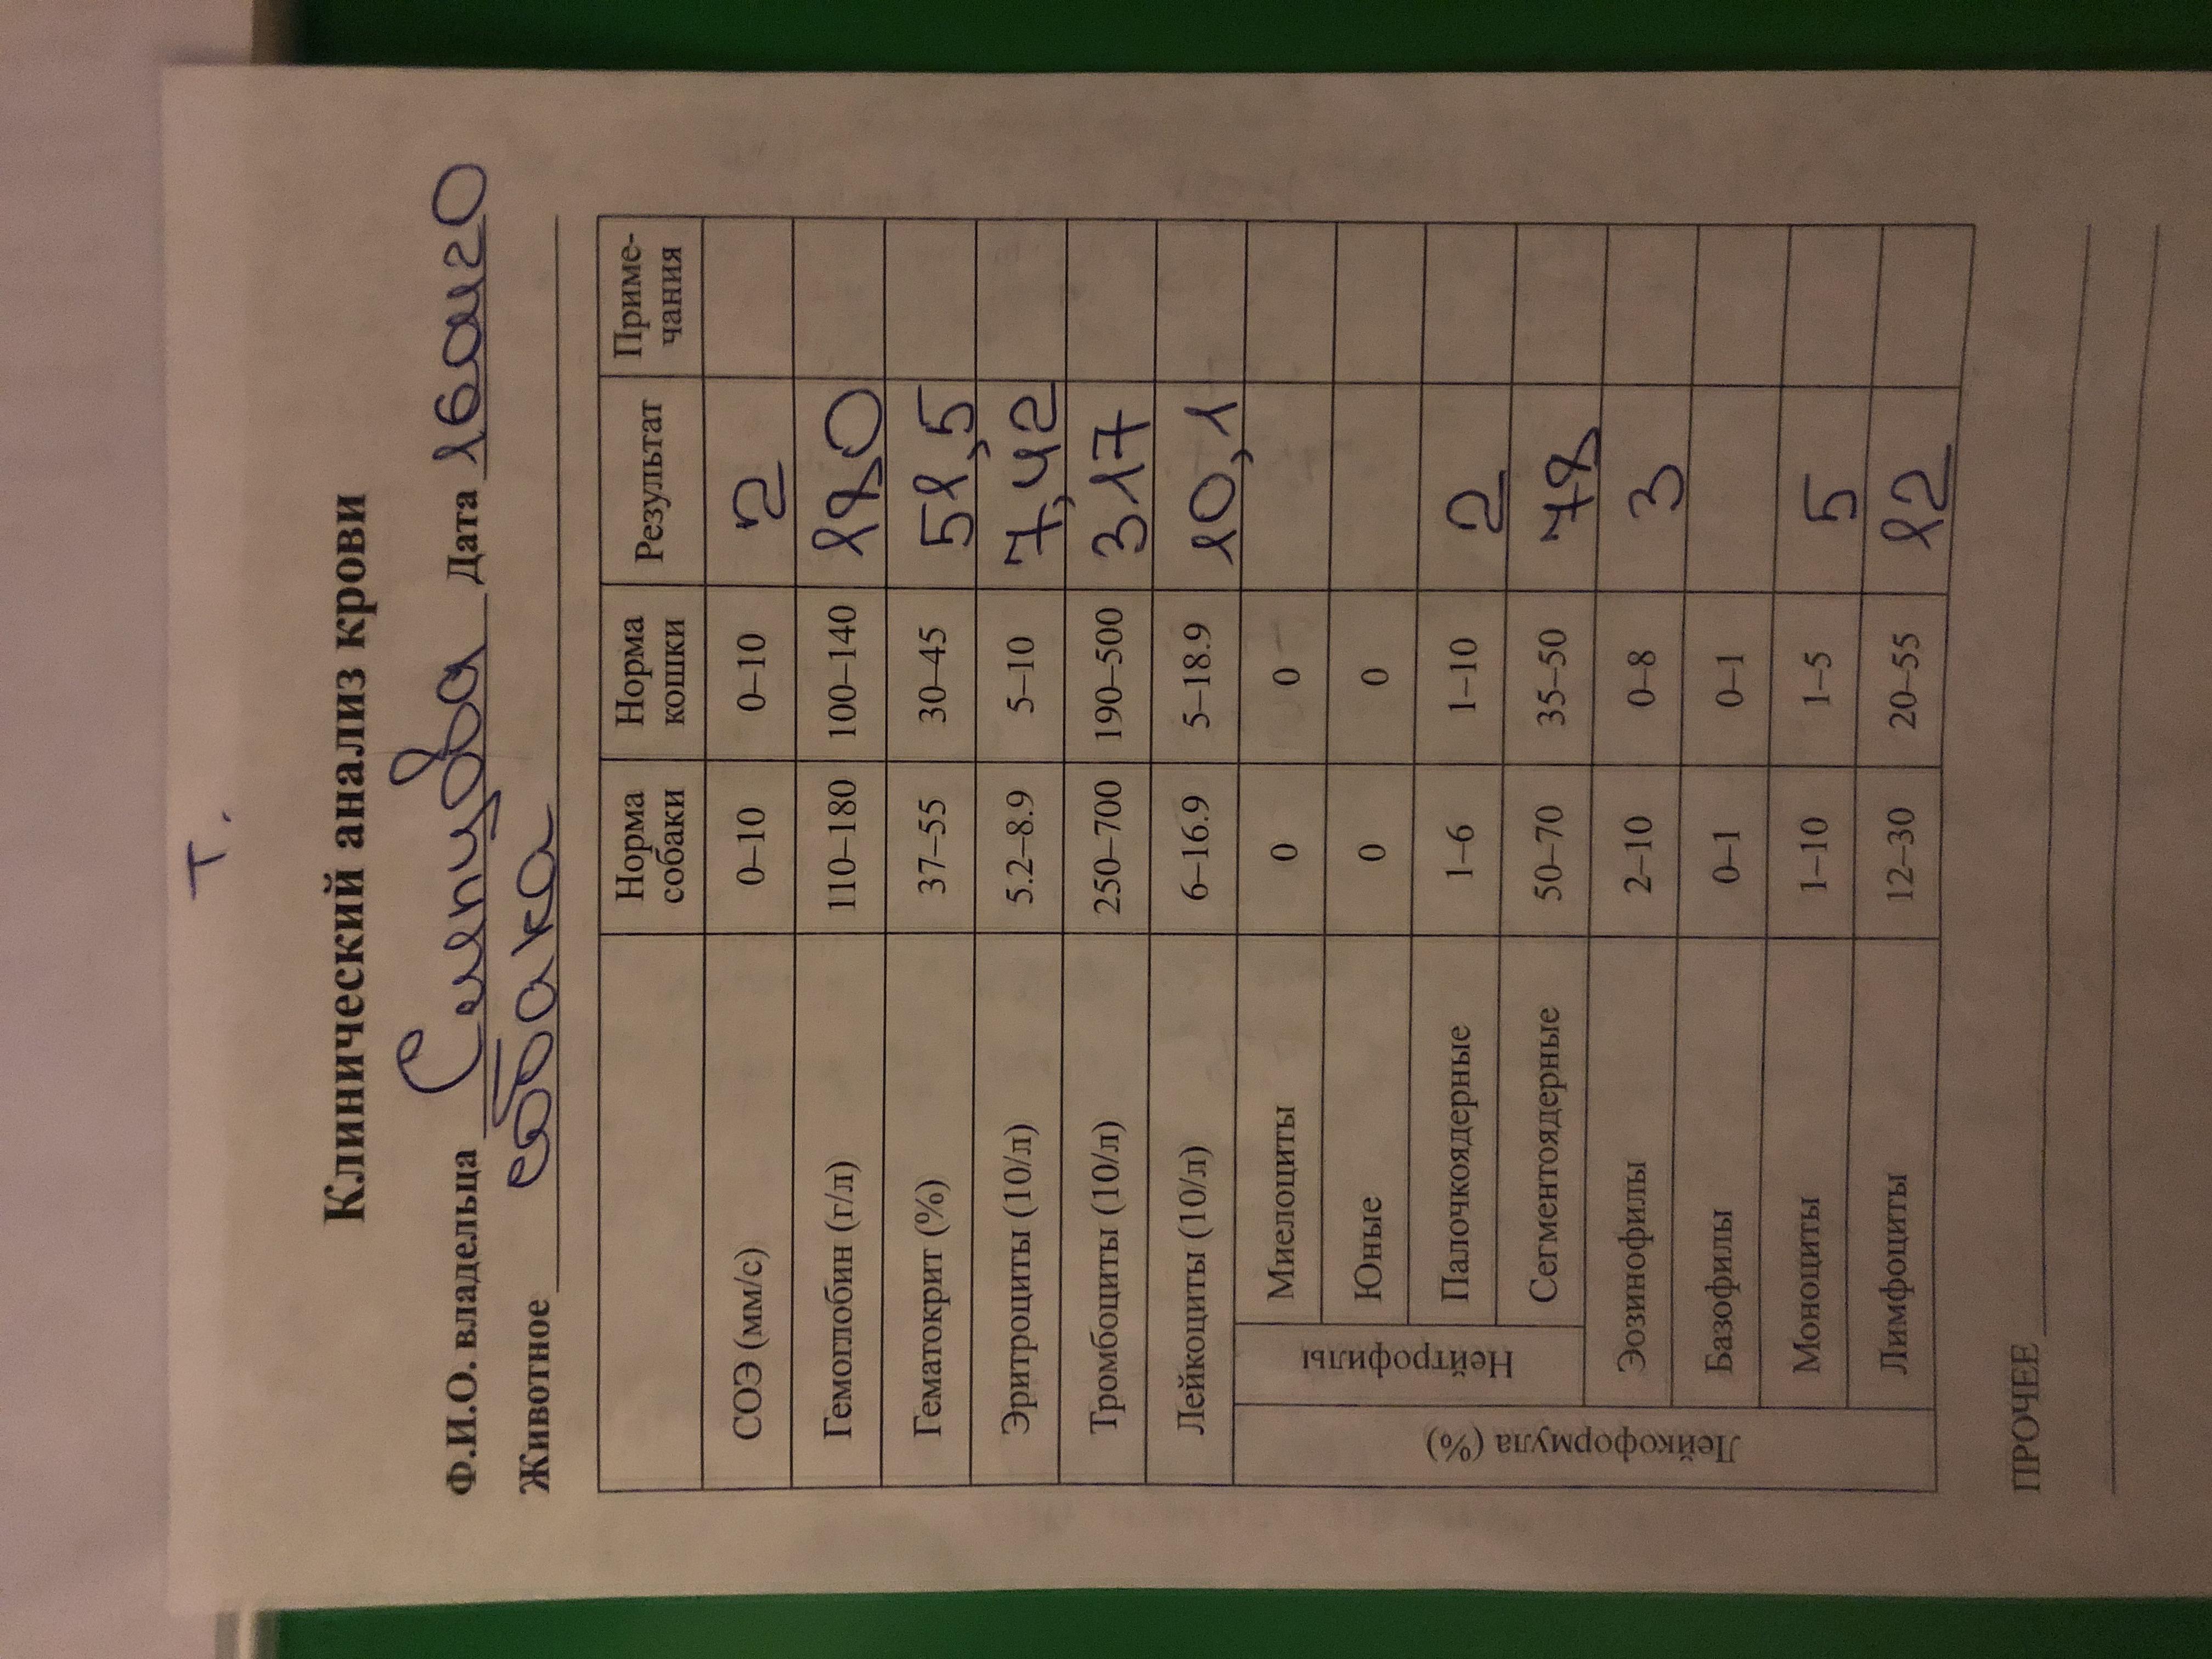 Т.
Клинический анализ крови
Ф.И.О. владельца Дата
Животное собака
Норма собаки Норма кошки Результат Приме-чания
СОЭ (мм/с) 0–10 0–10 2
Гемоглобин (г/л) 110–180 100–140 180
Гематокрит (%) 37–55 30–45 51,5
Эритроциты (10/л) 5.2–8.9 5–10 7,42
Тромбоциты (10/л) 250–700 190–500 317
Лейкоциты (10/л) 6–16.9 5–18.9 10,1
Лейкоформула (%)
Нейтрофилы
Миелоциты 0 0
Юные 0 0
Палочкоядерные 1–6 1–10 2
Сегментоядерные 50–70 35–50 78
Эозинофилы 2–10 0–8 3
Базофилы 0–1 0–1
Моноциты 1–10 1–5 5
Лимфоциты 12–30 20–55 12
ПРОЧЕЕ